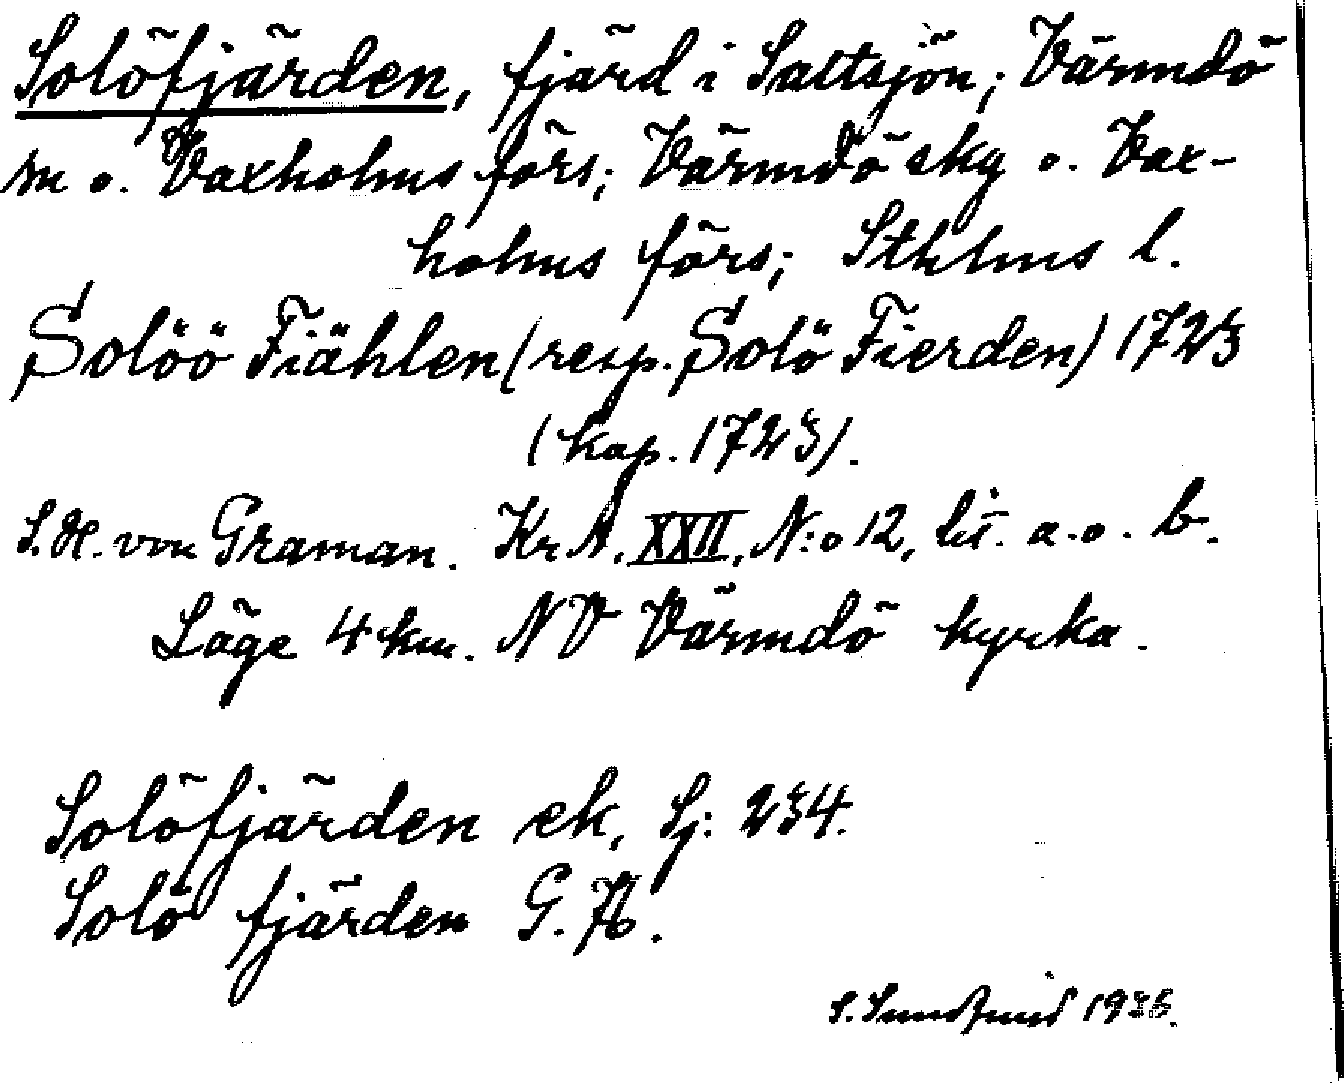 Solöfjärden, fjärd i Saltsjön; Värmdö
m o. Vaxholms förs; Värmdö sky o. Vax-
holms förs; Sthlms l.
Solöö Fiählen (resp. Solö Fierden) 1723
(kap. 1723).
S.H. von Graman. KrA. XXII, N:o 12, lit. a. o. b.
Läge 4 km. NV Värmdö kyrka.
Solöfjärden ek, Sj: 234.
Solö fjärden G.K.
S. 1935.